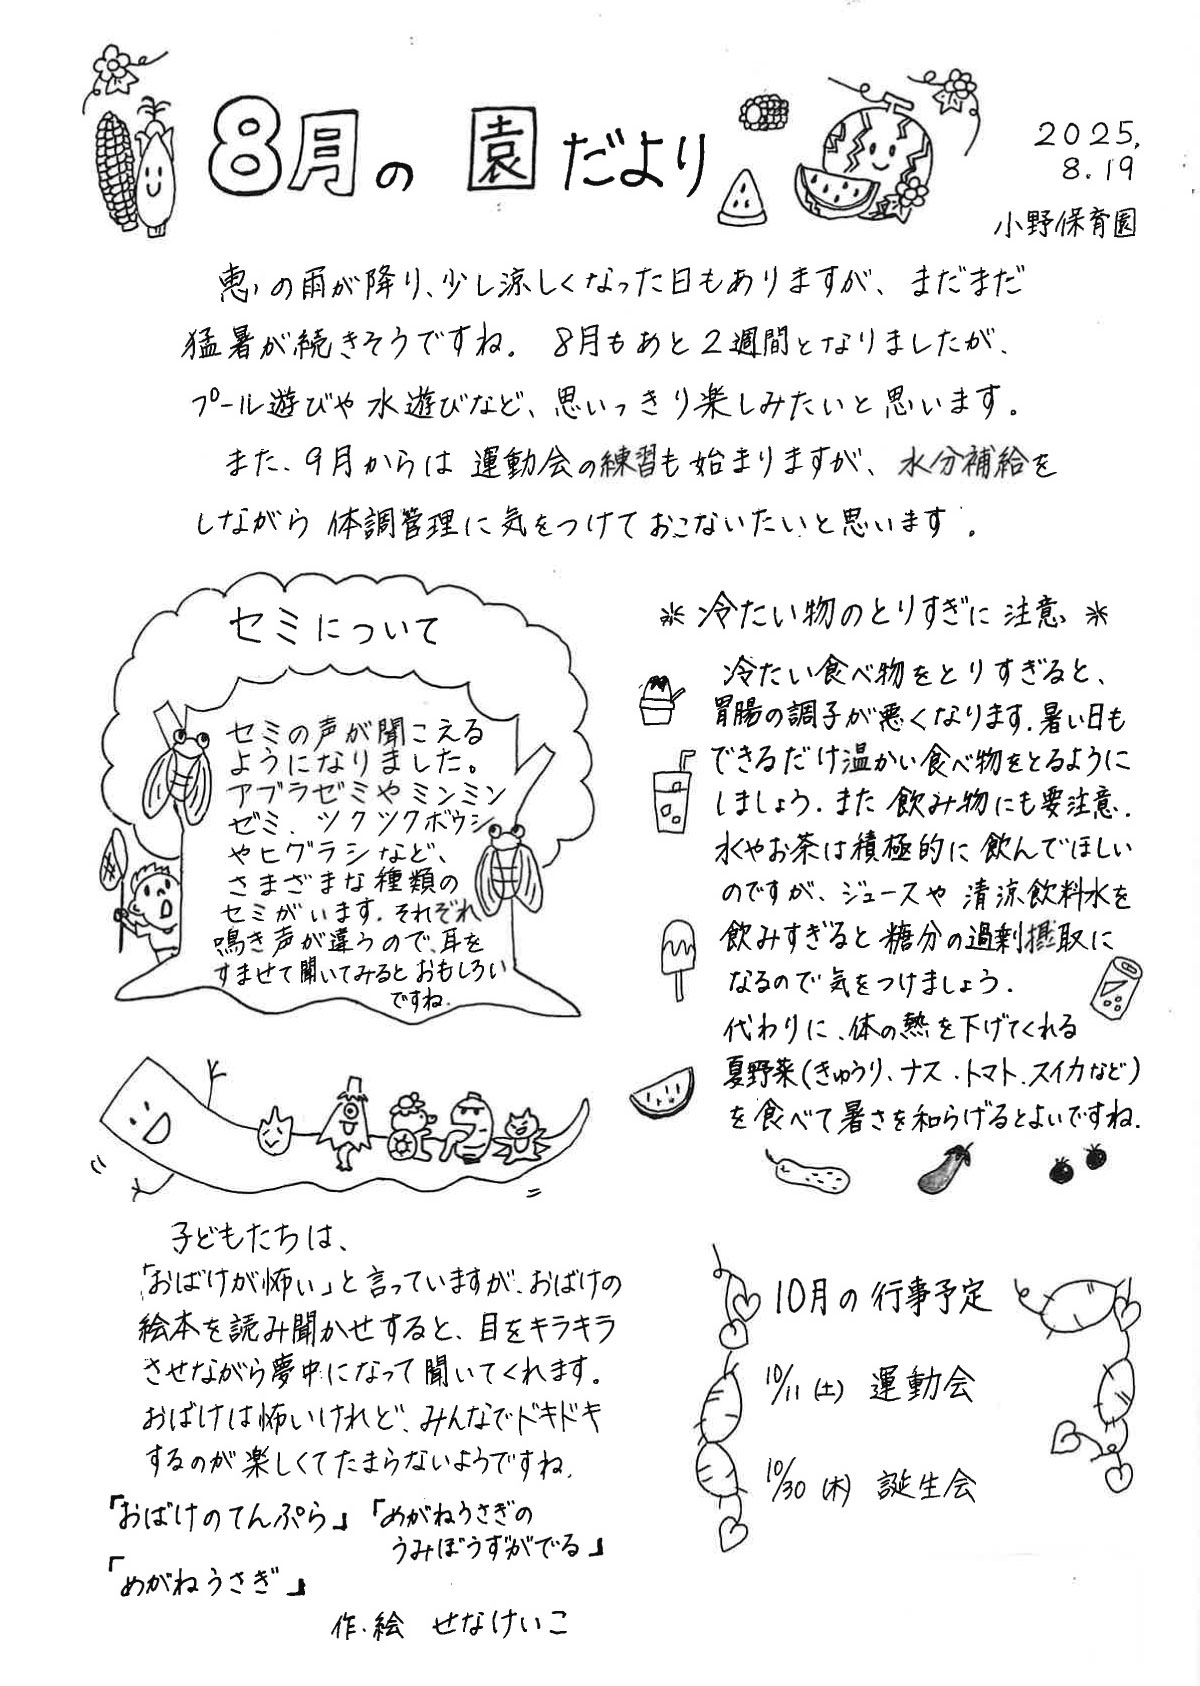 8月の園だより
2025.
8.19
小野保育園
恵の雨が降り、少し涼しくなった日もありますが、まだまだ
猛暑が続きそうですね。8月もあと2週間となりましたが、
プール遊びや水遊びなど、思いっきり楽しみたいと思います。
また、9月からは運動会の練習も始まりますが、水分補給を
しながら体調管理に気をつけておこないたいと思います。
セミについて
セミの声が聞こえる
ようになりました。
アブラゼミやミンミン
ゼミ、ツクツクボウシ
やヒグラシなど、
さまざまな種類の
セミがいます。それぞれ
鳴き声が違うので、耳を
すませて聞いてみるとおもしろい
ですね。
＊冷たい物のとりすぎに注意＊
冷たい食べ物をとりすぎると、
胃腸の調子が悪くなります。暑い日も
できるだけ温かい食べ物をとるように
しましょう。また飲み物にも要注意。
水やお茶は積極的に飲んでほしい
のですが、ジュースや清涼飲料水を
飲みすぎると糖分の過剰摂取に
なるので気をつけましょう。
代わりに、体の熱を下げてくれる
夏野菜(きゅうり、ナス、トマト、スイカなど)
を食べて暑さを和らげるとよいですね。
子どもたちは、
「おばけが怖い」と言っていますが、おばけの
絵本を読み聞かせすると、目をキラキラ
させながら夢中になって聞いてくれます。
おばけは怖いけれど、みんなでドキドキ
するのが楽しくてたまらないようですね。
『おばけのてんぷら』『めがねうさぎの
うみぼうずがでる』
『めがねうさぎ』
作・絵 せなけいこ
10月の行事予定
10/11(土) 運動会
10/30(木) 誕生会